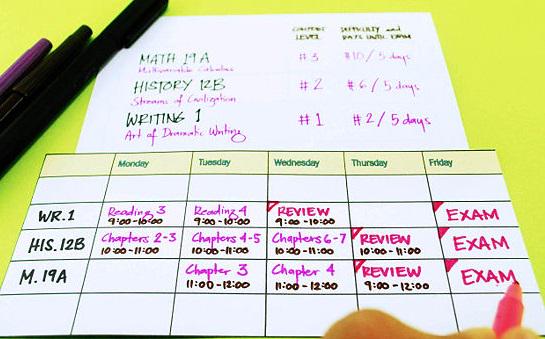 CONTENT LEVEL DIFFICULTY and DAYS UNTIL EXAM
MATH 19A #3 #10/5 days
Multivariable Calculus
HISTORY 12B #2 #6/5 days
Streams of Civilization
WRITING 1 #1 #2/5 days
Art of Dramatic Writing
Monday Tuesday Wednesday Thursday Friday
WR.1 Reading 3 Reading 4 REVIEW EXAM
9:00-10:00 9:00-10:00 9:00-10:00
HIS.12B Chapters 2-3 Chapters 4-5 Chapters 6-7 REVIEW EXAM
10:00-11:00 10:00-11:00 10:00-11:00 10:00-11:00
M.19A Chapter 3 Chapter 4 REVIEW EXAM
11:00-12:00 11:00-12:00 9:00-12:00